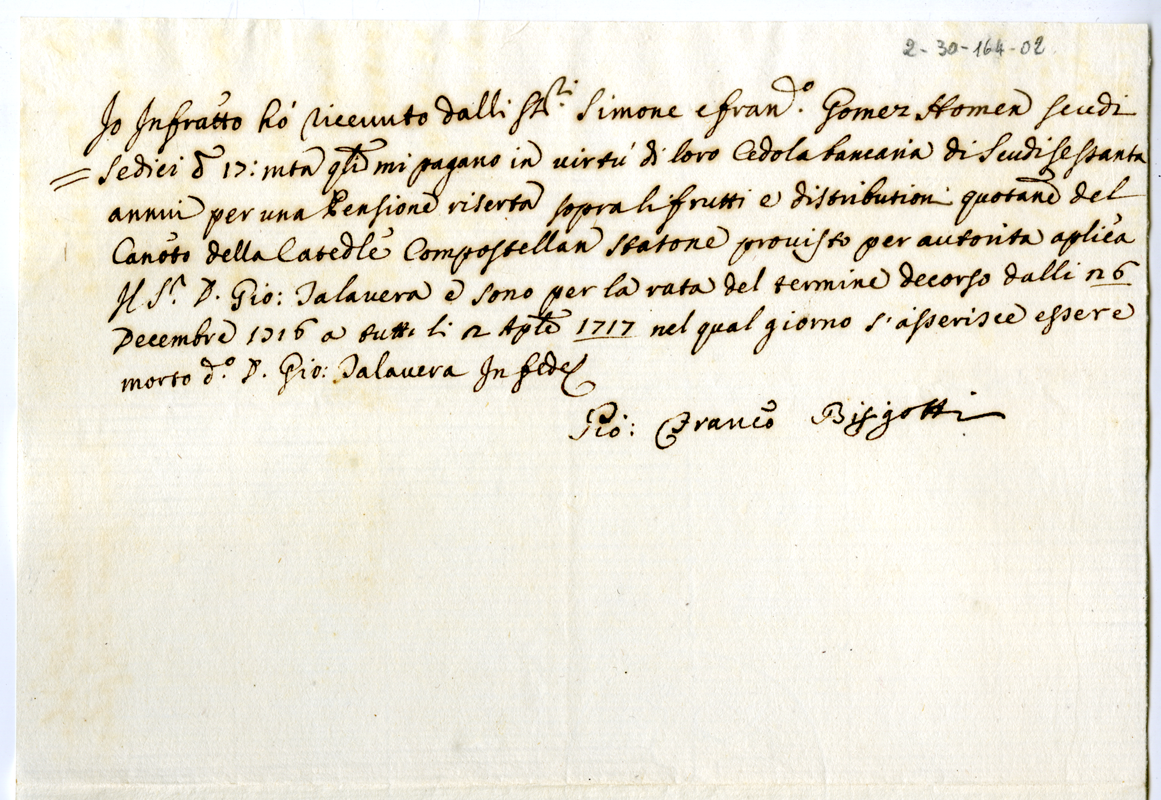 2-30-164-02
Io Infratto hó riceuuto dalli SS.ri Simone e fran.do Gomez Homen scudi
= Sedici d 17: mta qli mi pagano in virtú di loro Cedola bancaria di Scudi sessanta
annui per una Pensione riserta sopra li frutti e distributioni quotane del
Canoto della Catedle Compostellan statone provisto per autorita aplica
Il S.r D. Gio: Talavera e sono per la rata del termine decorso dalli 26
Decembre 1716 a tutti li 2 Aple 1717 nel qual giorno s'asserisce essere
morto d.o D. Gio: Talavera In fede
Gio: Franco Bisgotti